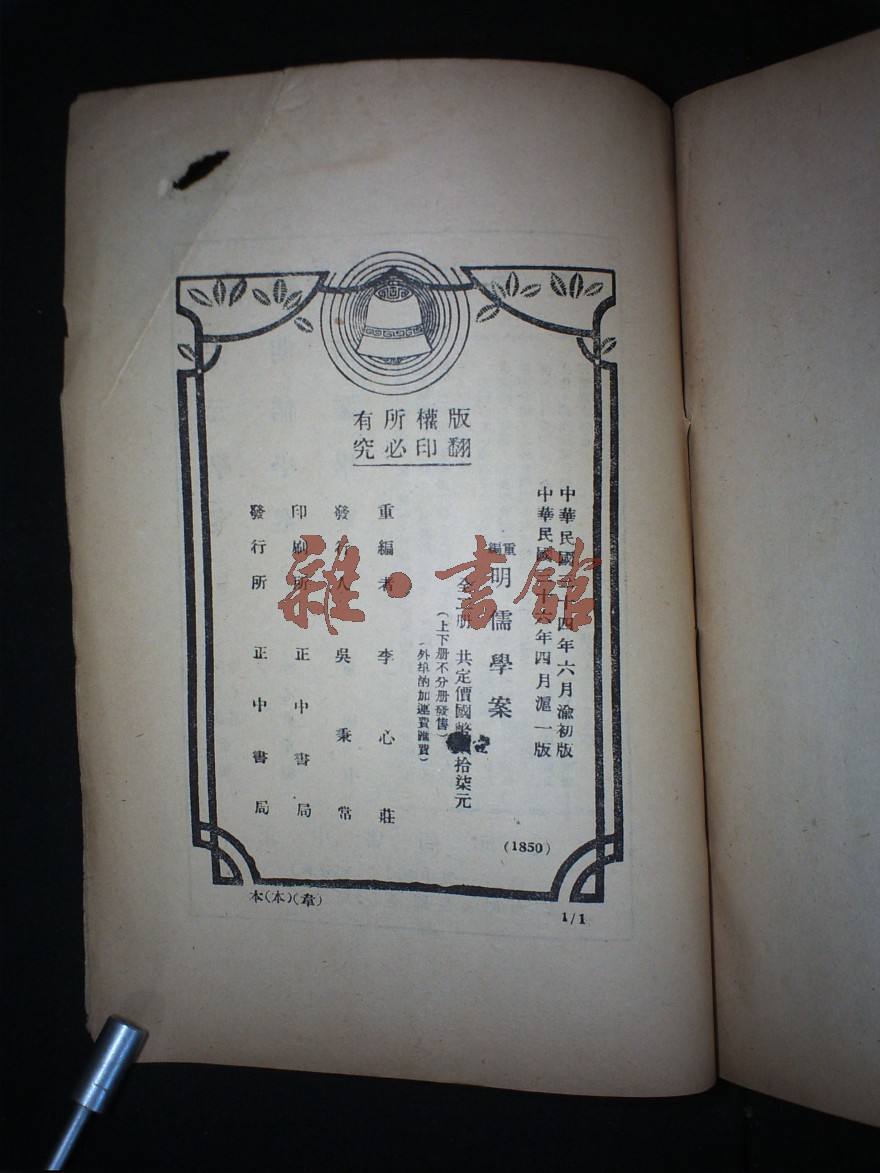 版權所有
翻印必究
中華民國三十四年六月渝初版
中華民國三十六年四月滬一版
重編 明儒學案
全二册 共定價國幣 拾柒元
(上下册不分册發售)
(外埠酌加運費滙費)
重編者 李心莊
發行人 吳秉常
印刷所 正中書局
發行所 正中書局
(1850)
本(本)(韋)
1/1
雜·書館